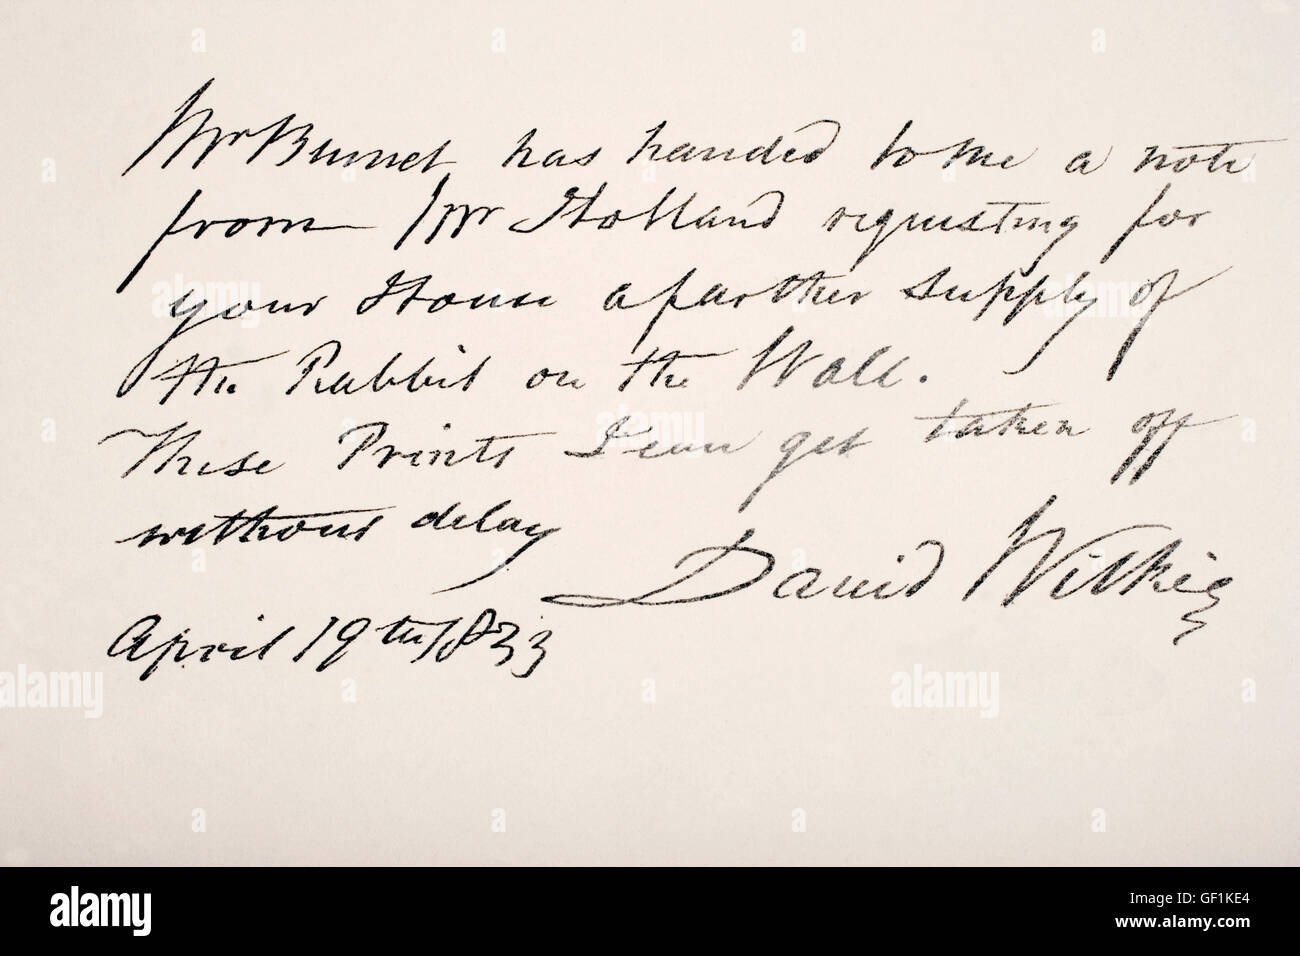 Mr Burnet has handed to me a note
from Mr Holland requesting for
your House a farther supply of
the Rabbit on the Wall.
These Prints I can get taken off
without delay
David Wilkie
April 19th 1833
alamy
alamy
alamy
alamy
alamy
alamy
Image ID: GF1KE4
www.alamy.com